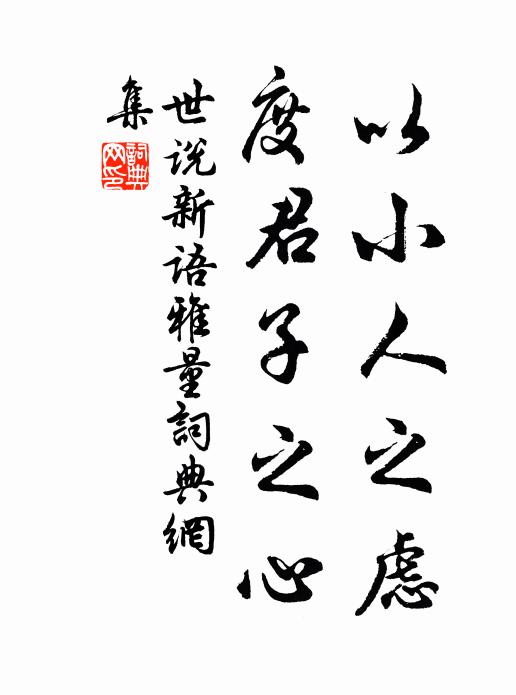 以小人之慮
度君子之心
世説新語雅量詞典網
集
詞典
网印